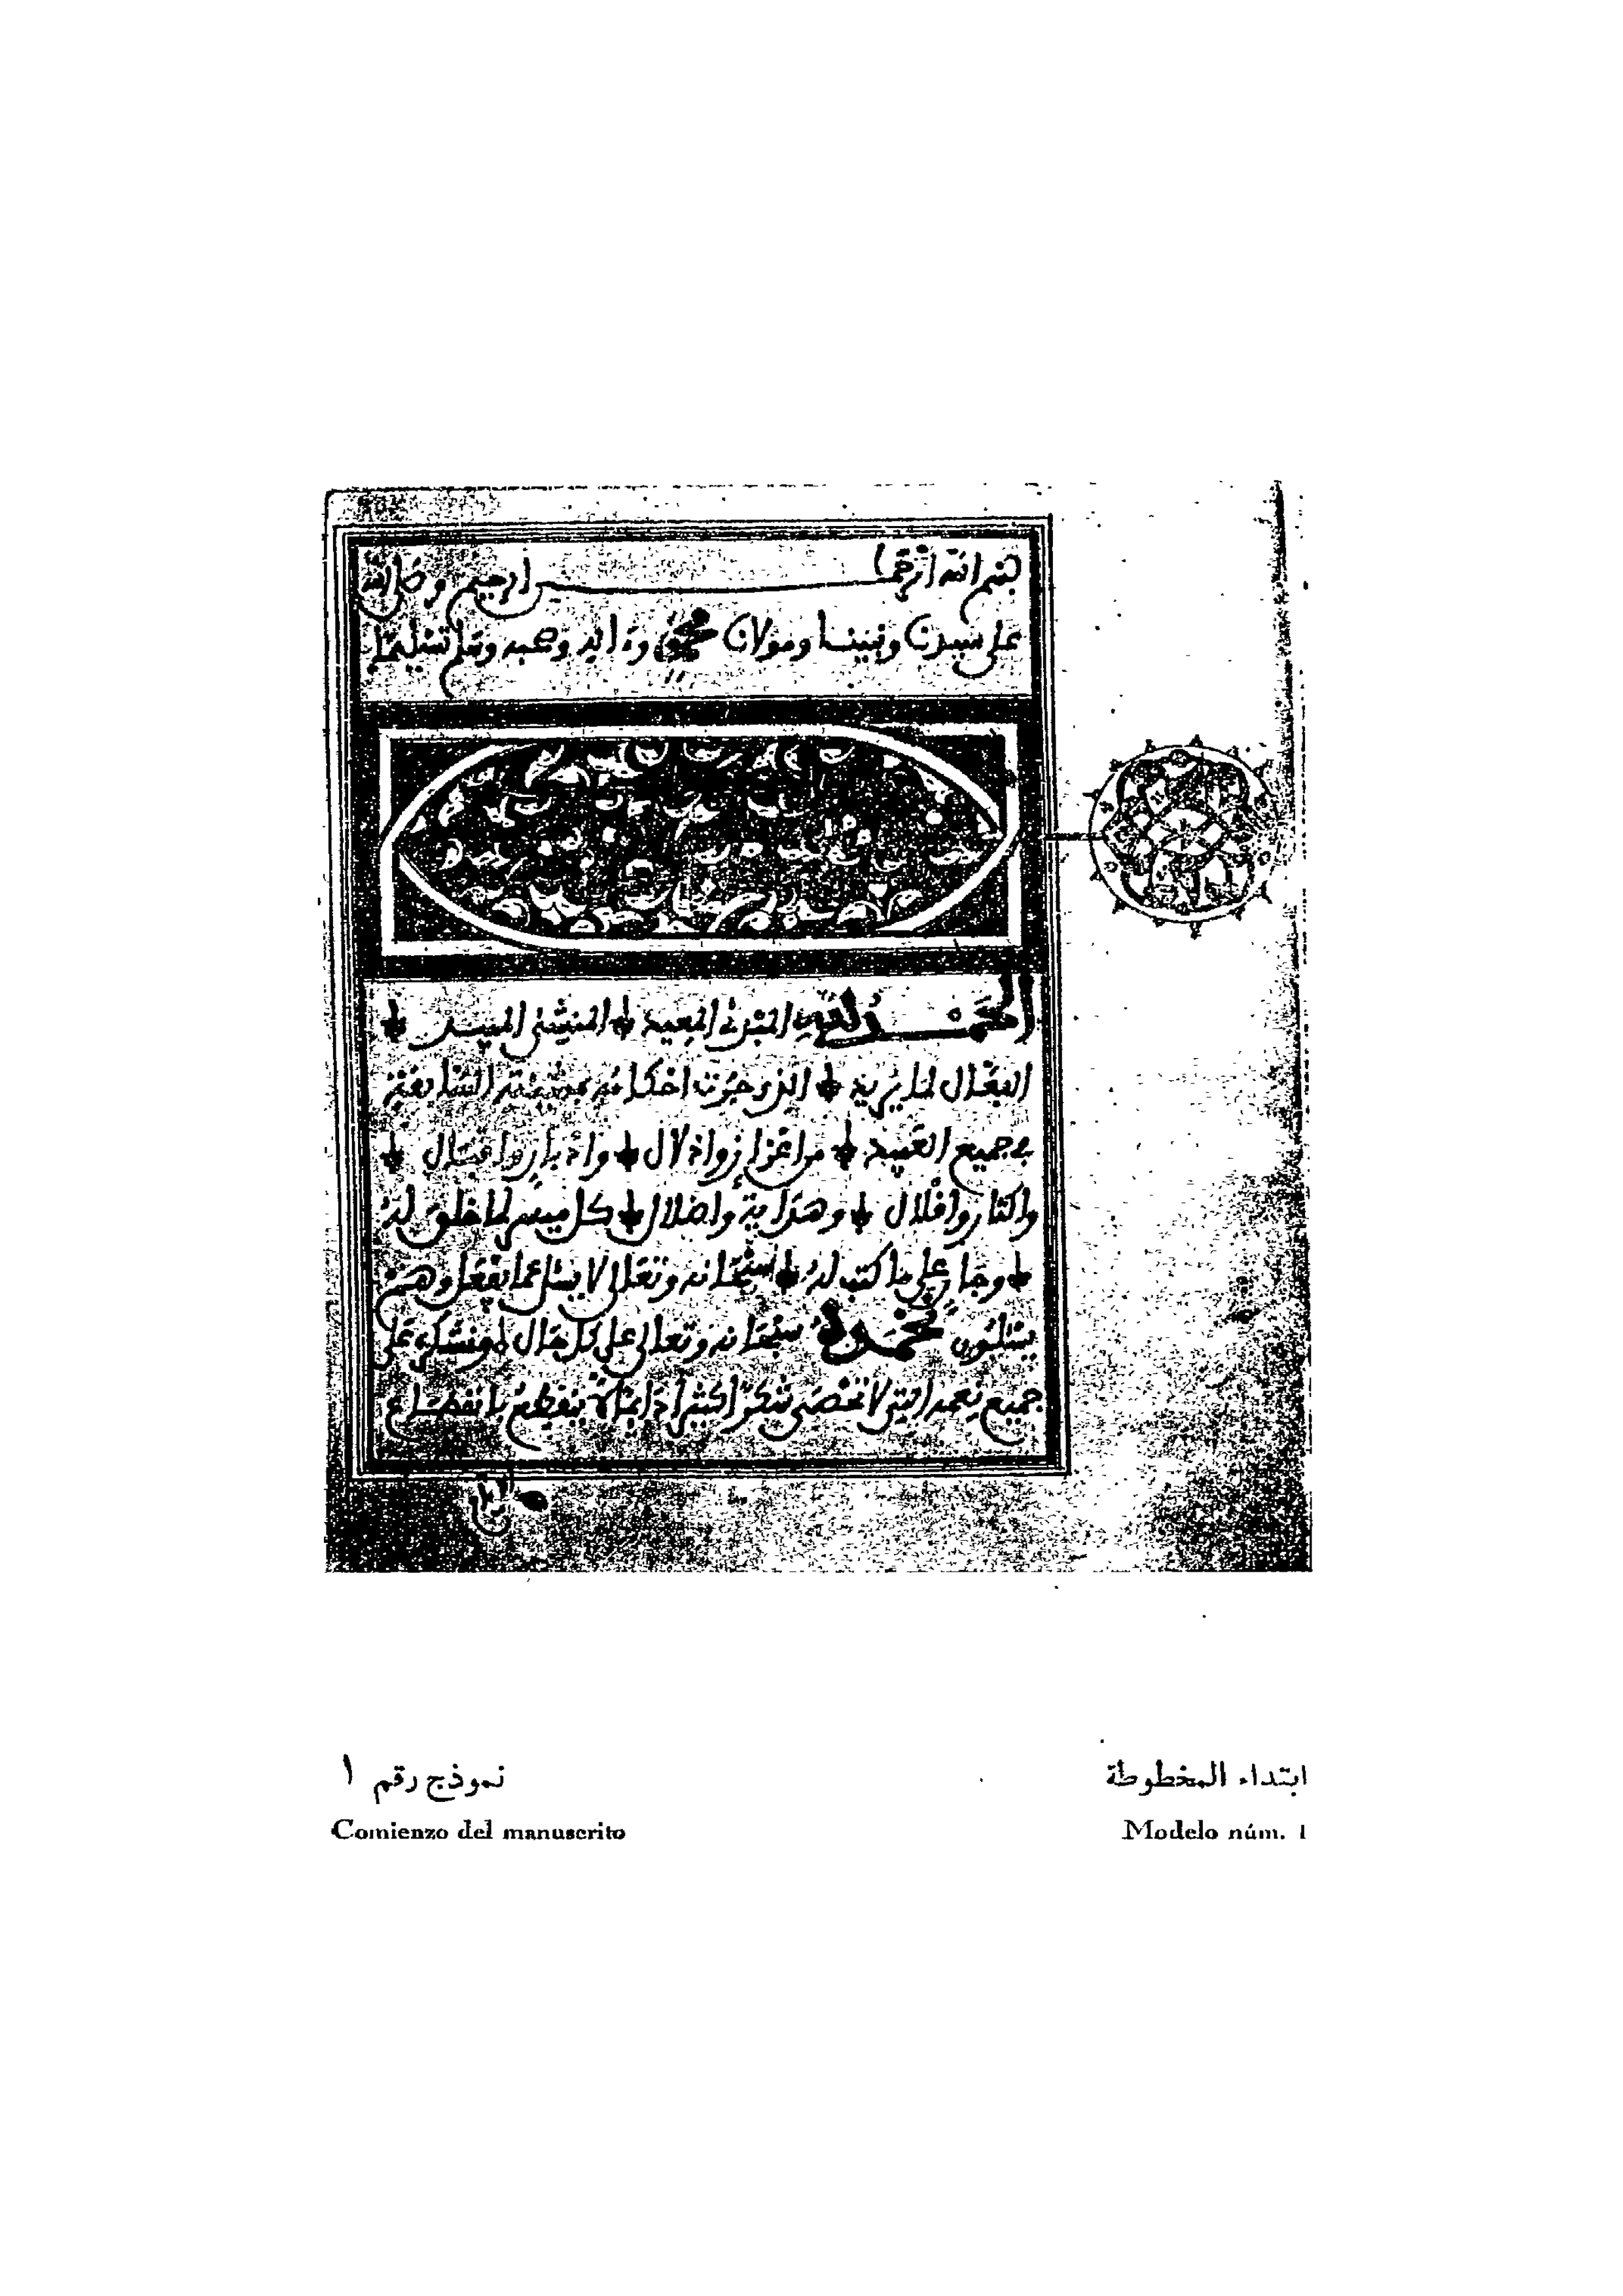 بسم الله الرحمان الرحيم وصلى الله
على سيدنا ونبينا ومولانا محمد وءاله وصحبه وسلم تسليما
الحمد لله المبدئ المعيد المنشئ المبيد
الفعال لما يريد الذي جرت احكامه بمشيئته السابغة
في جميع العبيد من اعزاز واذلال وادبار واقبال
واكثار واقلال وهداية واضلال كل ميسر لما خلق له
وجار على ما كتب له سبحانه وتعالى لا يسئل عما يفعل وهم
يسئلون نحمده سبحانه وتعالى على كل حال ونشكره على
جميع نعمه التي لا تحصى شكرا كثيرا دايما لا ينقطع بانقطاع
ابتداء المخطوطة
نموذج رقم ١
Comienzo del manuscrito
Modelo núm. 1